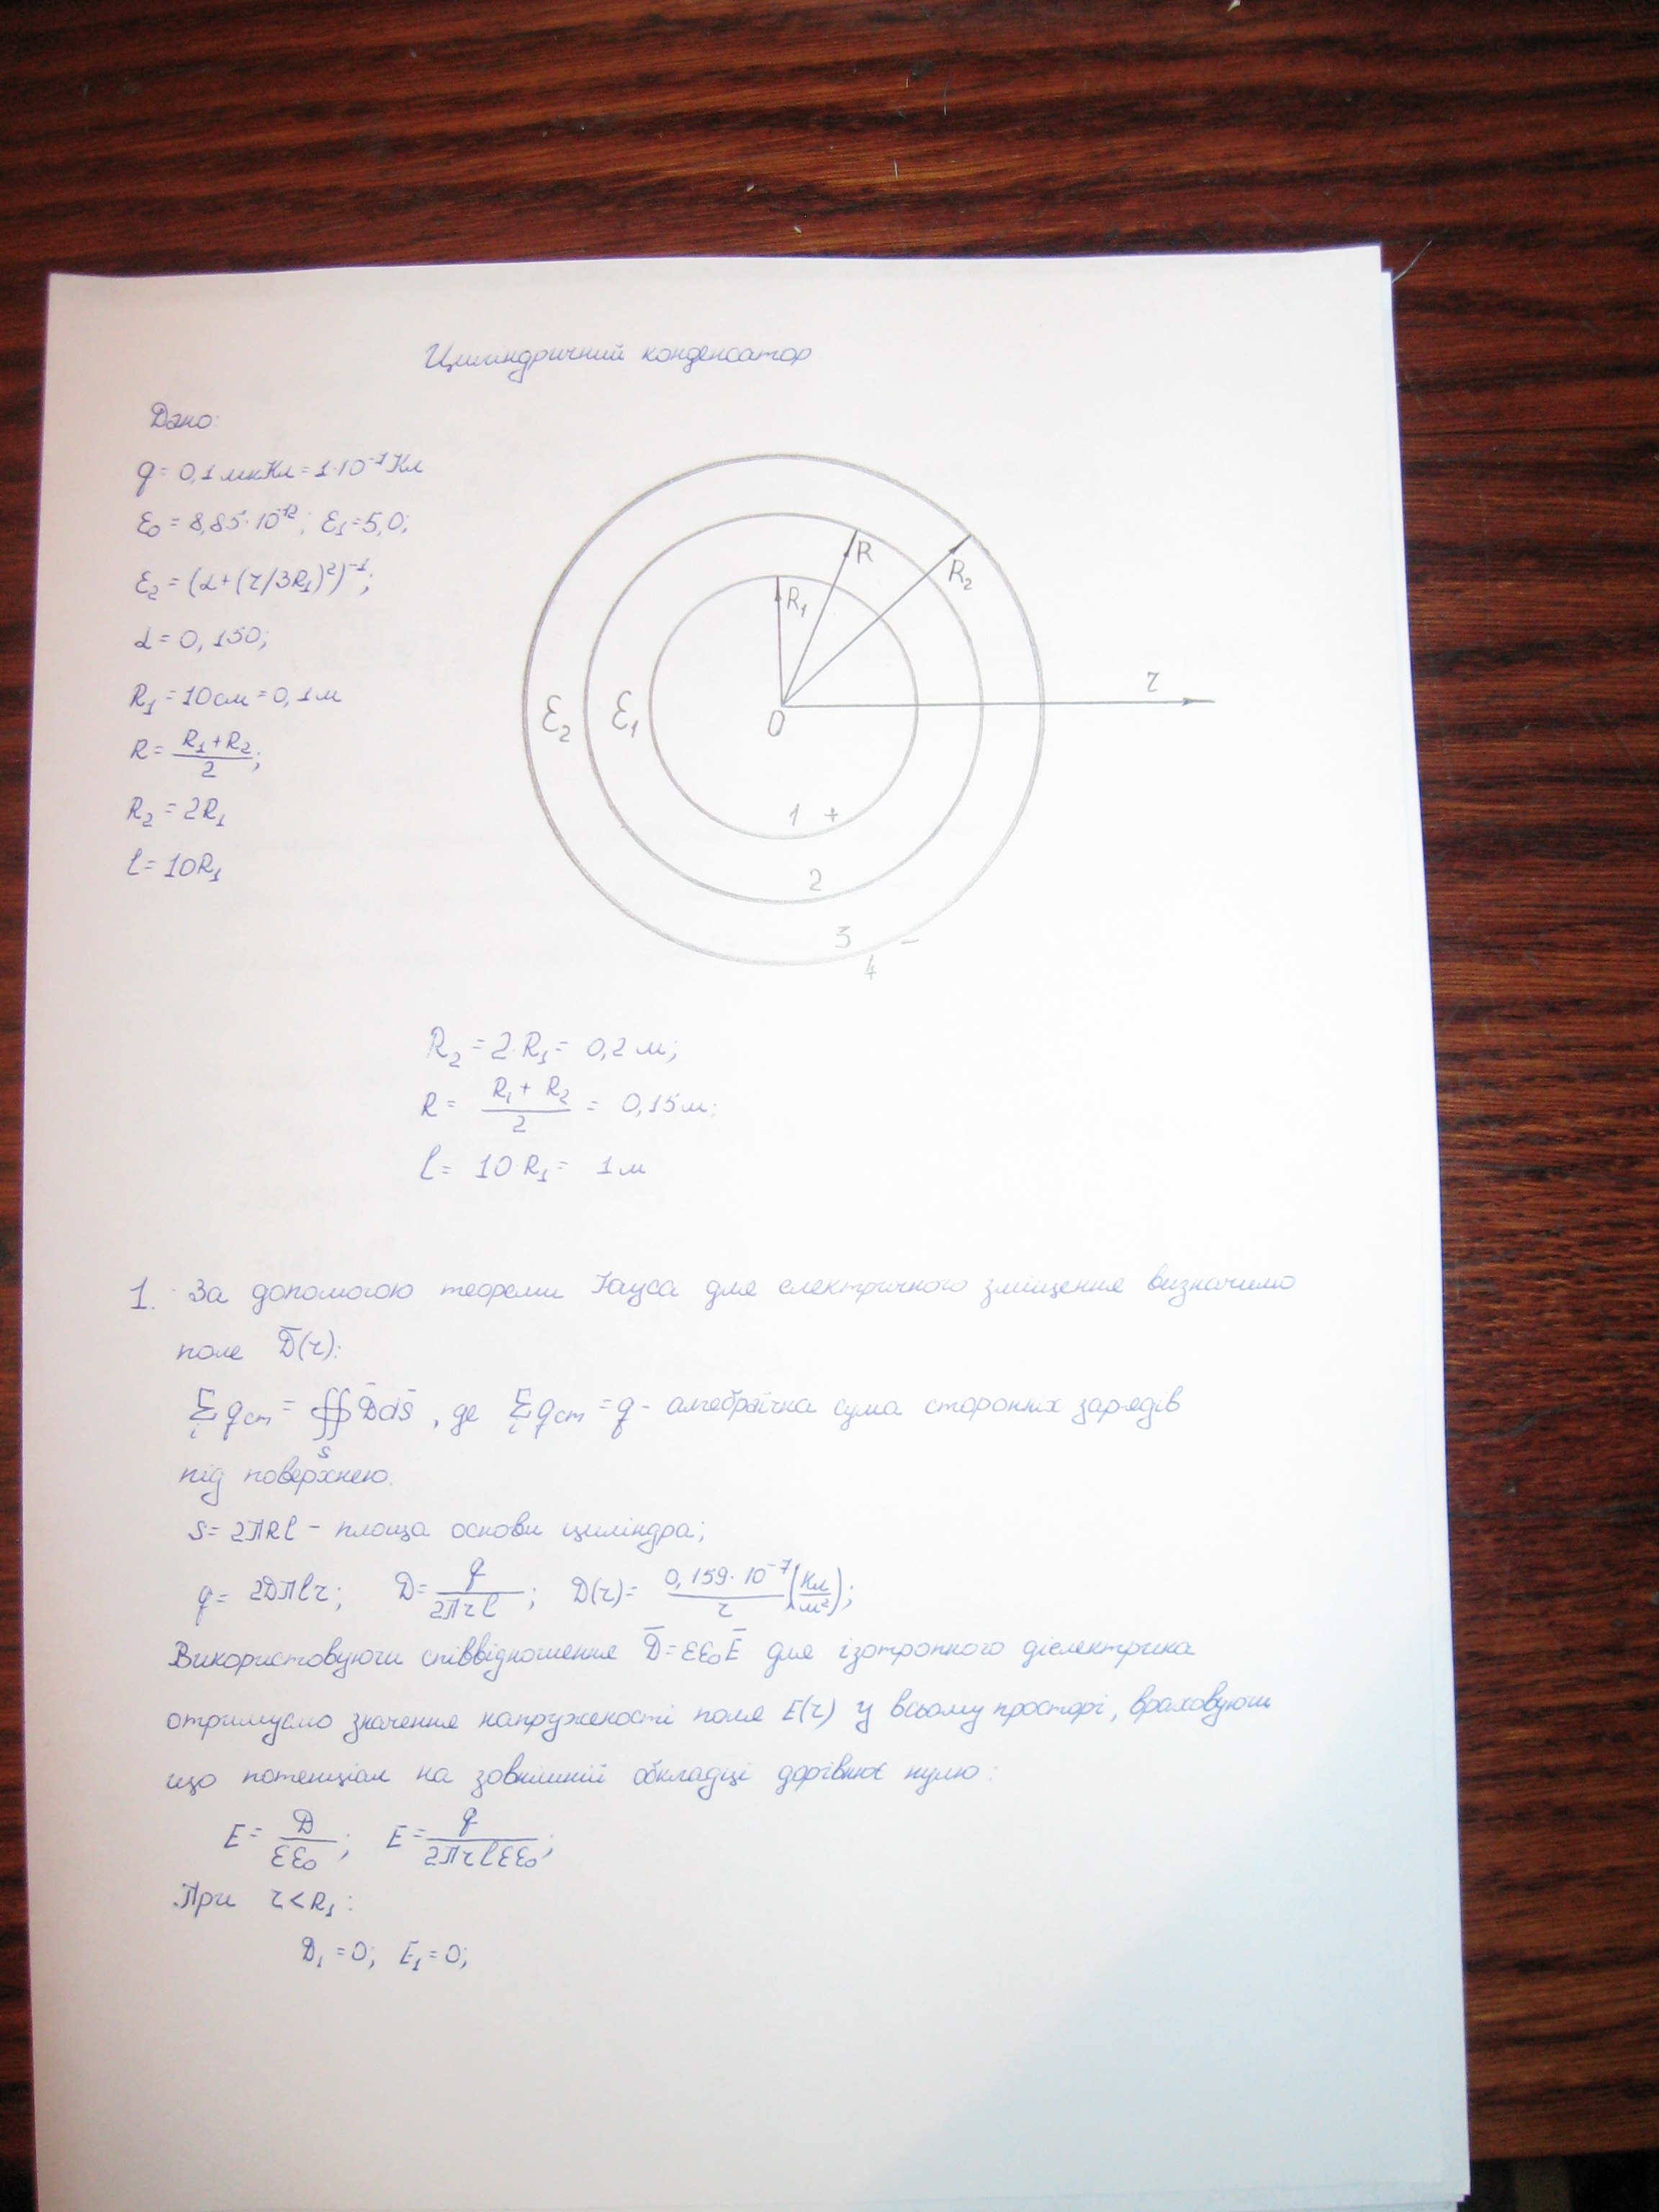 Циліндричний конденсатор
Дано:
q = 0,1 мкКл = 1·10⁻⁷ Кл
ε₀ = 8,85·10⁻¹²; ε₁ = 5,0;
ε₂ = (α + (r/3R₁)²)⁻¹;
α = 0,150;
R₁ = 10 см = 0,1 м
R = (R₁ + R₂)/2;
R₂ = 2R₁
l = 10R₁
R
R₂
R₁
r
ε₂ ε₁ O
1 +
2
3 −
4
R₂ = 2·R₁ = 0,2 м;
R = (R₁ + R₂)/2 = 0,15 м;
l = 10·R₁ = 1 м
1. За допомогою теореми Гауса для електричного зміщення визначимо
поле D̄(r):
∑ᵢ qст = ∯ₛ D̄dS̄, де ∑ᵢ qст = q - алгебраїчна сума сторонніх зарядів
під поверхнею.
S = 2πRl – площа основи циліндра;
q = 2Dπlr; D = q/(2πrl); D(r) = (0,159·10⁻⁷)/r (Кл/м²);
Використовуючи співвідношення D̄ = εε₀Ē для ізотропного діелектрика
отримуємо значення напруженості поля E(r) у всьому просторі, враховуючи
що потенціал на зовнішній обкладці дорівнює нулю:
E = D/(εε₀); E = q/(2πrlεε₀);
При r < R₁:
D₁ = 0; E₁ = 0;